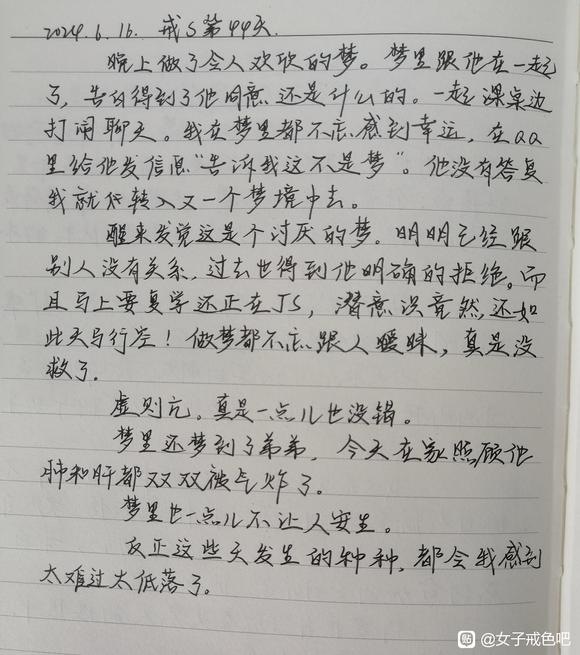 2024.6.16. 戒S第44天.
晚上做了令人欢欣的梦。梦里跟他在一起
了，告白得到了他同意还是什么的。一起课桌边
打闹聊天。我在梦里都不忘感到幸运，在QQ
里给他发信息“告诉我这不是梦”。他没有答复
我就代转入又一个梦境中去。
醒来发觉这是个讨厌的梦。明明已经跟
别人没有关系，过去也得到他明确的拒绝。而
且马上要复学还正在JS，潜意识竟然还如
此天马行空！做梦都不忘跟人暧昧，真是没
救了.
虚则亢。真是一点儿也没错。
梦里还梦到了弟弟，今天在家照顾他
肺和肝都双双被气炸了。
梦里也一点儿不让人安生。
反正这些天发生的种种，都令我感到
太难过太低落了。
贴 @女子戒色吧